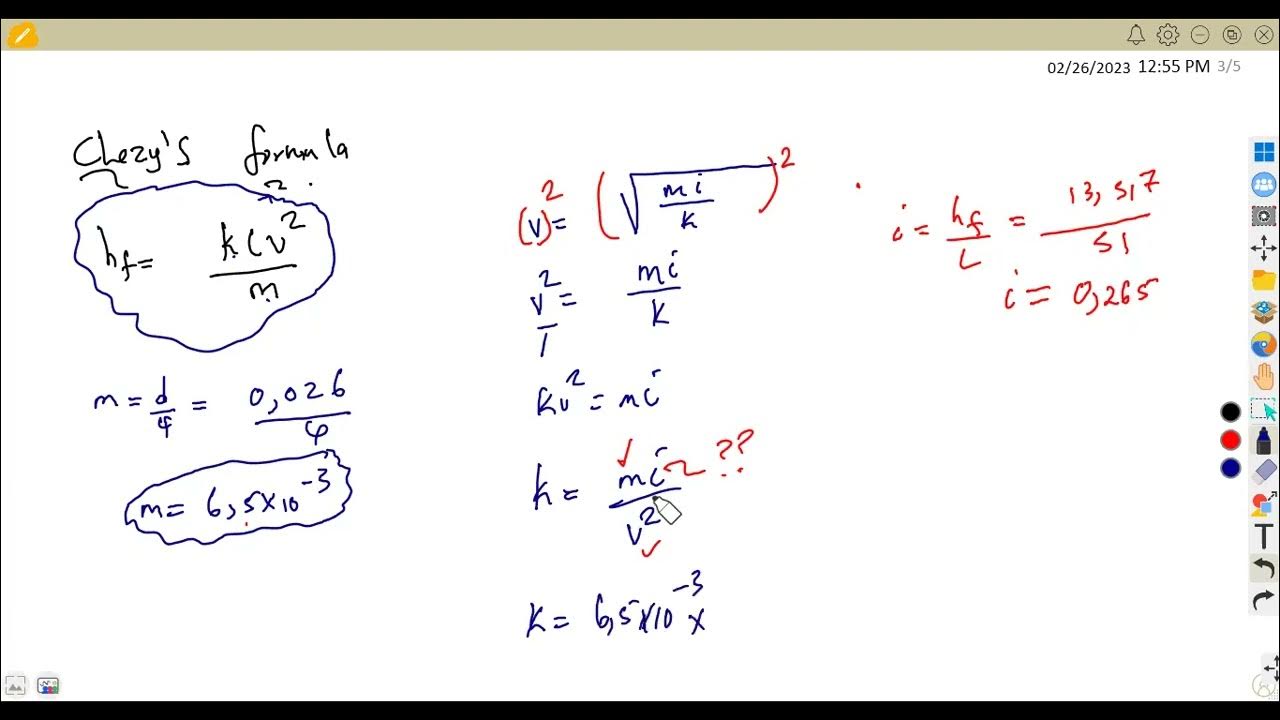 02/26/2023 12:55 PM 3/5
Chezy's formula
hf = klv²/m
m = d/4 = 0,026/4
m = 6,5×10⁻³
(v)² = (√(mi/k))²
v²/1 = mi/k
kv² = mi
k = mi/v² ??
k = 6,5×10⁻³ ×
i = hf/L = 13,517/51
i = 0,265
T